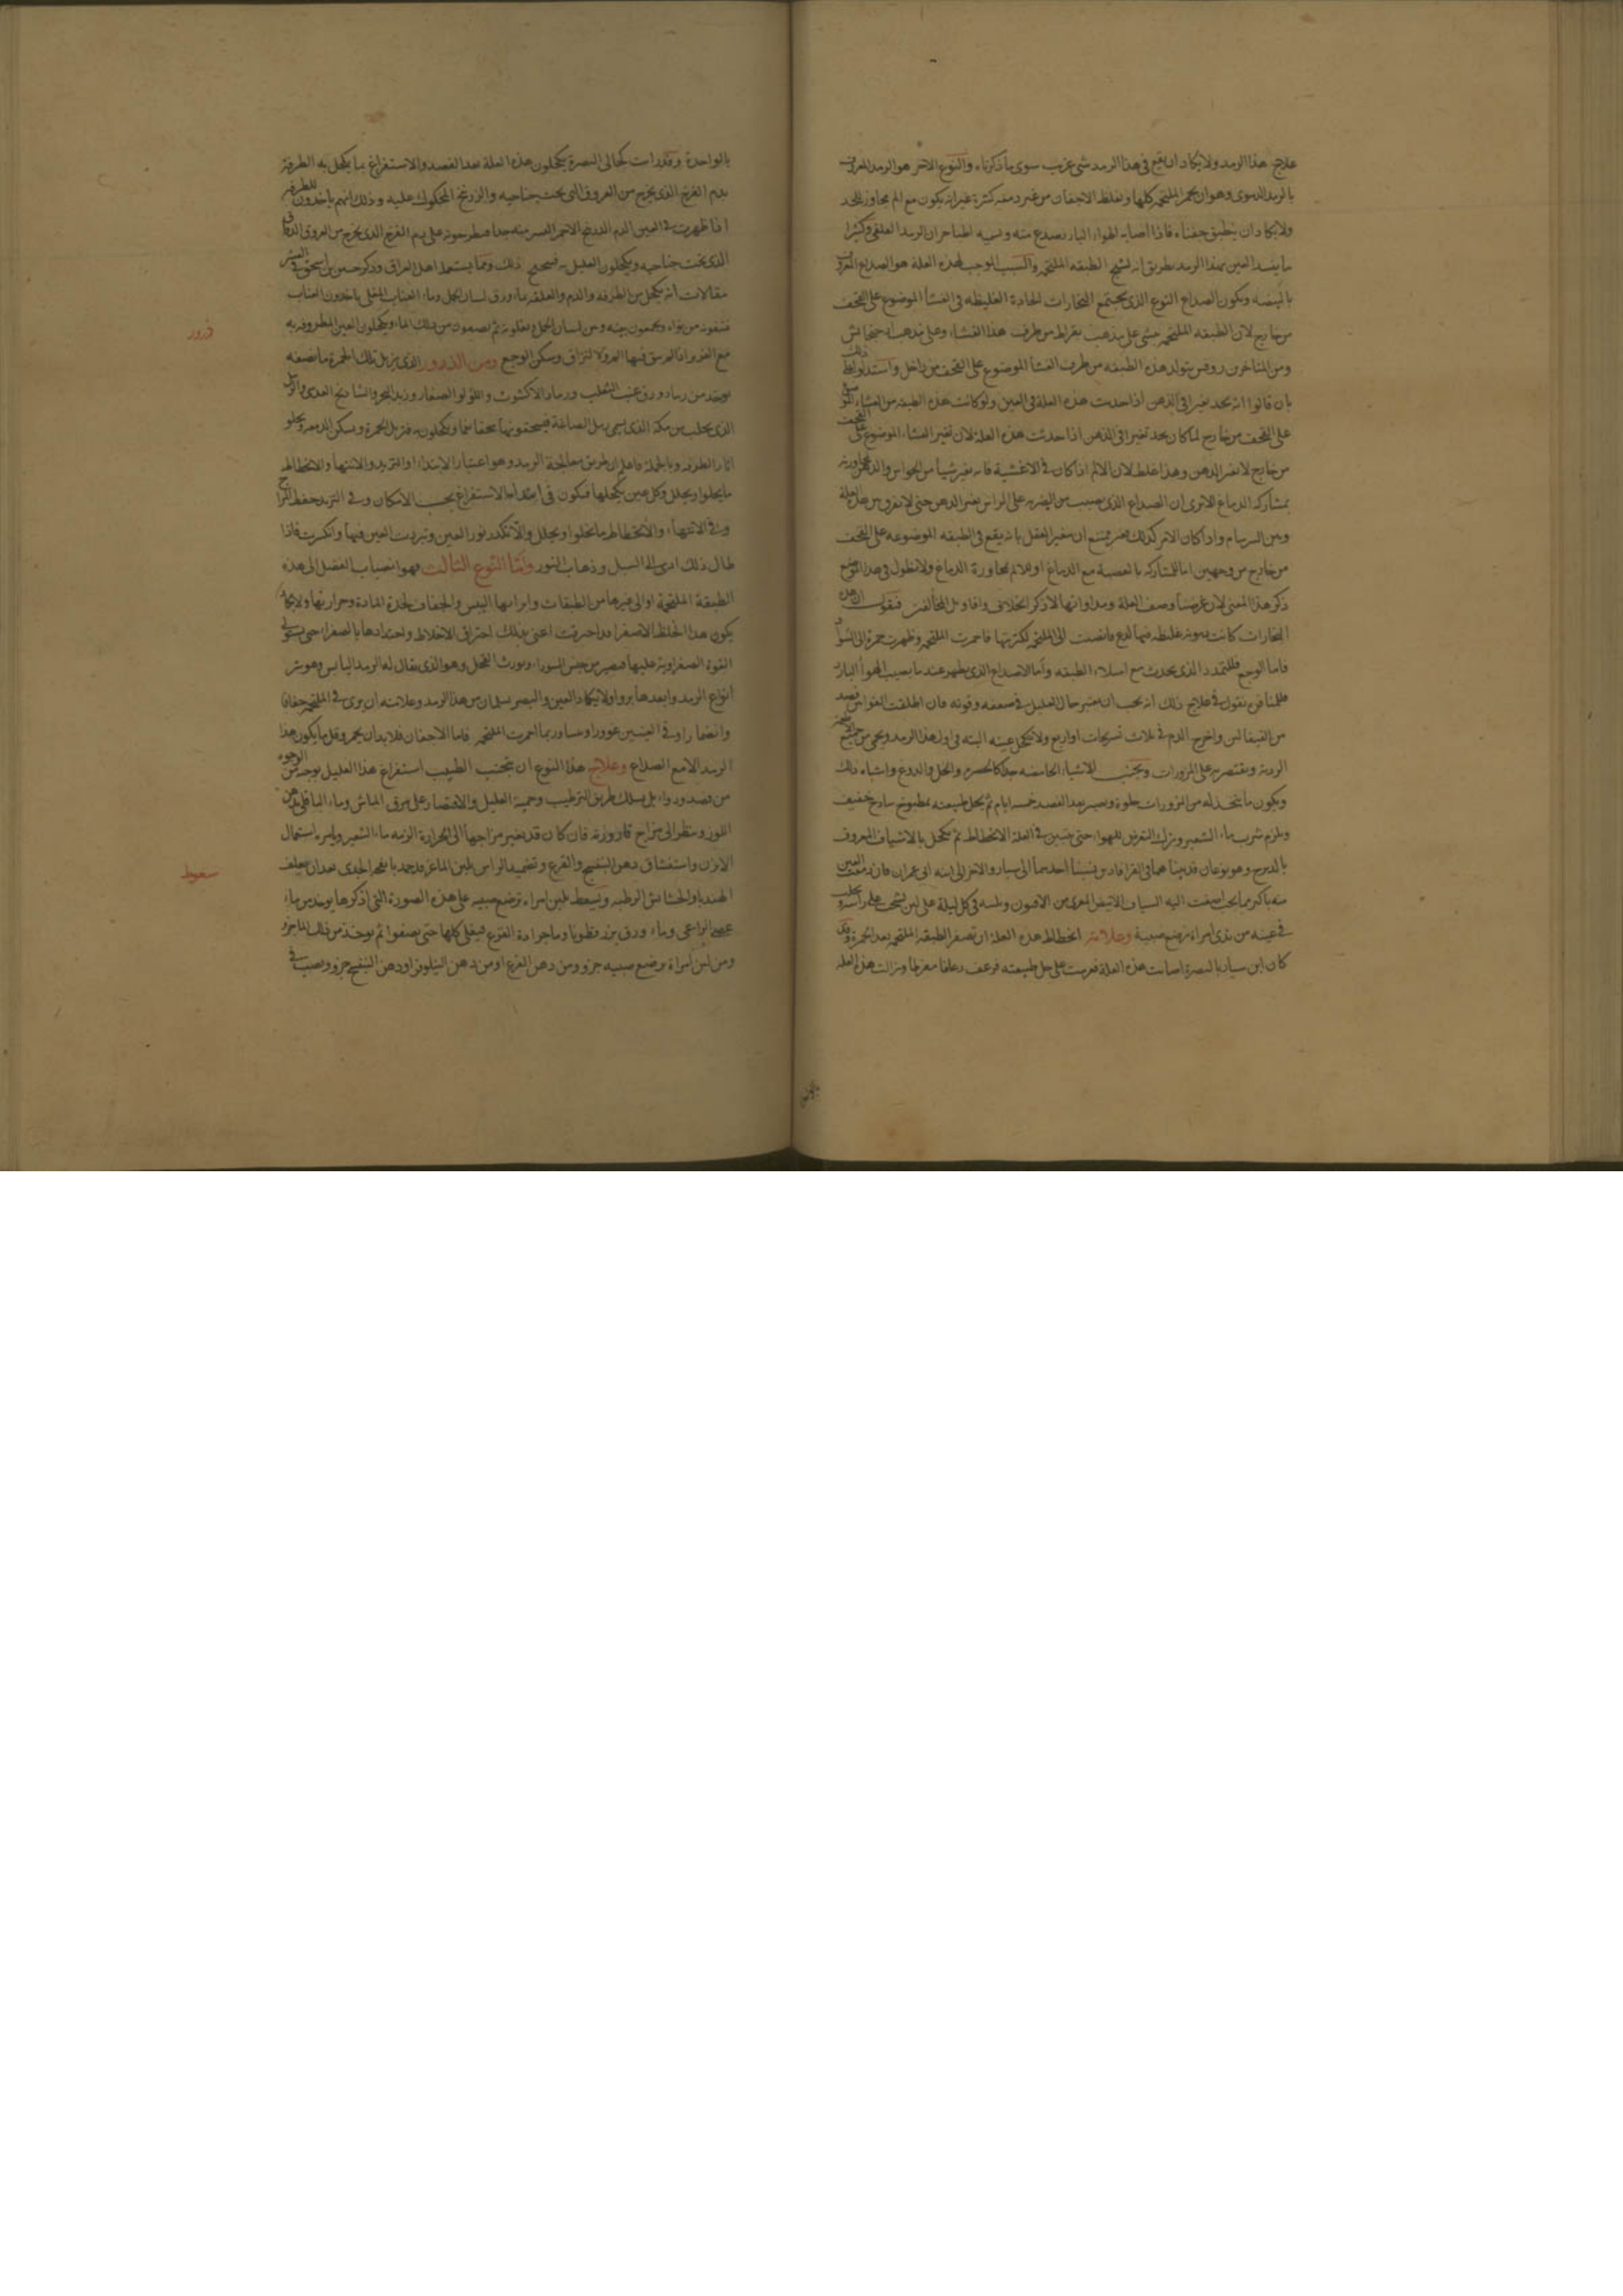 علاج هذا الرمد ولا يكاد ان يقع في هذا الرمد شئ غريب سوى ما ذكرناه والنوع الاخر هو الرمد المعروف
بالرمد الدموى وهو ان يحمر الملتحمه كلها وتغلظ الاجفان من غير دمعه كثيرة غير انه يكون مع الم مجاوز للحد
ولا يكاد ان ينطبق جفناه فاذا اصابه الهواء البارد صدع منه
ما يفسد العين بهذا الرمد الطبقه الملتحمه والسبب الموجب لهذه العلة هو الصداع المعروف
بالبيضه ويكون الصداع النوع الذى يجتمع البخارات الحادة الغليظه في الغشأ الموضوع على القحف
من خارج لان الطبقه الملتحمه على مذهب بقراط من طرف هذا الغشاء وعلى مذهب
ومن المتاخرين روفس يتولد هذه الطبقه من طرف الغشأ الموضوع على القحف من داخل واستدلوا على ذلك
بان قالوا انه يحد تغير فى الذهن اذا حدثت هذه العلة فى العين ولو كانت هذه الطبقه من الغشاء
على القحف من خارج لما كان يحد تغيرا فى الذهن اذا حدثت هذه العلة لان تغير الغشاء الموضوع على القحف
من خارج لا يغير الدهن وهذا غلط لان الالم اذا كان في الاغشية فانه يغير شيأ من الحواس والدهن
بمشاركه الدماغ الا ترى ان الصداع الذى يصيب من الضربه على الراس يغير الدهن حتى لا يفرق بين هذه العلة
وبين السرسام واذا كان الامر كذلك ان يتغير العقل بما يقع فى الطبقه الموضوعه على القحف
من خارج من وجهين اما للمشاركه بالعصبة مع الدماغ او للالم لمجاورة الدماغ ولا نطول في هذا الموضع
ذكر هذا المعنى لان غرضنا وصف العلة ومداواتها لا ذكر الخلاف واقاويل المخالفين فنقول ان هذه
البخارات كانت دمويه غليظه فيها لدع فانصبت الى الملتحمه لكثرتها فاحمرت الملتحمه وظهرت حمرة الى السواد
فاما الوجع فللتمدد الذى يحدث مع امتلاء الطبقه وأما الصداع الذى يظهر عند ما يصيبه الهوأ البارد
نقول فى علاج ذلك انه يجب ان يعتبر حال العليل في ضعفه وقوته فان اطلقت القوة فصد
من القيفالين واخرج الدم في ثلاث تسريحات او اربع ولا تكحل عينه البته في اول هذا الرمد ويحمى من جميع الاطعمة
الردية ويقتصر به على المزورات وتجنب الاشياء الحامضه جدا كالحصرم والخل والدوغ واشباه ذلك
ويكون ما يتخذ له من المزورات حلوة ويصبر بعد الفصد خمسة ايام ثم يحل طبيعته بمطبوخ ساذج خفيف
ويلزم شرب ماء الشعير وترك التعرض للهواء حتى يتبين في العلة الانحطاط ثم تكحل بالاشياف المعروف
وهو نوعان قد بينا هما في القرافادين ينسبنا احدهما الى سيار والاخر الى ابى عمران فان دمعت العين
منه باكثر مما يجب اضفت اليه الشياف الابيض المعرى من الافيون
في عينه من ثدى امراة ترضع صبية وعلامة انحطاط هذه العلة ان تصفر الطبقه الملتحمه بعد الحمرة وقد
كان ابن سيار بالبصرة اصابت هذه العلة فعزمت على حل طبيعته فرعف رعافا مفرطا وزالت هذه العله
بالواحدة
بالواحدة وقد رات كحالى البصرة يكحلون هذه العلة بعد الفصد والاستفراغ بما يكحل به الطرفة
بدم الفرخ الذى يخرج من العروق التى تحت جناحيه والزرنيخ المحكوك عليه وذلك انهم ياخذون للطرفه
اذا ظهرت في العين الدم الزرنيخ الاحمر على دم الفرخ الذى يخرج من العروق
الذى تحت جناحيه ويكحلون العليل به فصحيح ذلك ومما يستعمله اهل العراق وذكر حنين بن اسحق في العشر
مقالات انه يكحل من الطرفه والدم والعلقه بماء ورق لسان الحمل وماء العناب المغلى ياخذون العناب
فينقونه من نواه ويجمعون بينه وبين لسان الحمل يغلونه ثم يصفون من ذلك الماء ويكحلون العين المطروفه به
وسكن الوجع ومن الذرور الذى يزيل تلك الحمرة ما نصفه
يوخذ من رماد ورق عنب الثعلب ورماد الاكشوث واللؤلؤ الصغار وزبد البحر والشادنج العدسى والرمل
الذى يجلب من مكة الذى يسمى رمل الصاغة فيسحقونها سحقا ناعما ويكحلون به فتزيل الحمرة ويسكن الدمعه ويجلو
اثار الطرفه وبالجملة فاعلم ان طريق معالجة الرمد وهو اعتبار الابتداء والتزيد والانتهاء والانحطاط
ما يجلوا ويحلل وكل عين تكحلها فيكون في ابتدائه الاستفراغ بحسب الامكان وفي التزيد حفظ المزاج
وفي الانتهاء والانحطاط ما يجلوا ويحلل والا تكدر نور العين وتربت العين فيها وانكرت فاذا
طال ذلك ادى الى السبل وذهاب النور واما النوع الثالث فهو انصباب الفضل الى هذه
الطبقة الملتحمة او الى غيرها من الطبقات وايراثها اليبس والجفاف لحدة المادة وحرارتها ولا يكاد
يكون هذا الخلط الا صفرا قد احترقت اعنى بذلك احتراق الاخلاط واحتدادها بالصفراء حتى يستولى
القوة الصفراوية عليها فتصير من جنس السوداء ويورث القحل وهو الذى يقال له الرمد اليابس وهو شر
انواع الرمد وابعدها بروا ولا يكاد العين والبصر يسلمان من هذا الرمد وعلامته ان يرى في الملتحمه جفافا
وانضماراو في العينين غوورا وربما احمرت الملتحمه فاما الاجفان فلا بد ان يحمر وقل ما يكون هذا
الرمد الا مع الصداع وعلاج هذا النوع ان يتجنب الطبيب استفراغ هذا العليل بوجه من الوجوه
من فصد ودواء بل يسلك طريق الترطيب وحمية العليل والاقتصار على مرق الماش وماء الباقلى بدهن
اللوز وينظر الى مزاج قارورته فان كان قد تغير مزاجها الى الحرارة الزمه ماء الشعير ويامره استعمال
الابزن واستنشاق دهن البنفسج والقرع وتضميد الراس بلبن الماعز قد جمد بانفحه الجدى بعد ان يعلف
الهندبا والحشائش الرطبه ويسعط بلبن امراه ترضع صبيه على هذه الصورة التى اذكرها يوخذ من ماء
عصى الراعى وماء ورق بزرقطونا وما جرادة القرع فيغلى كلها حتى يصفوا ثم يوخذ من ذلك الماء جزو
ومن لبن امراة ترضع صبيه جزو ومن دهن القرع او من دهن النيلوفر او دهن البنفسج جزو ويصب في
ذرور
سعوط